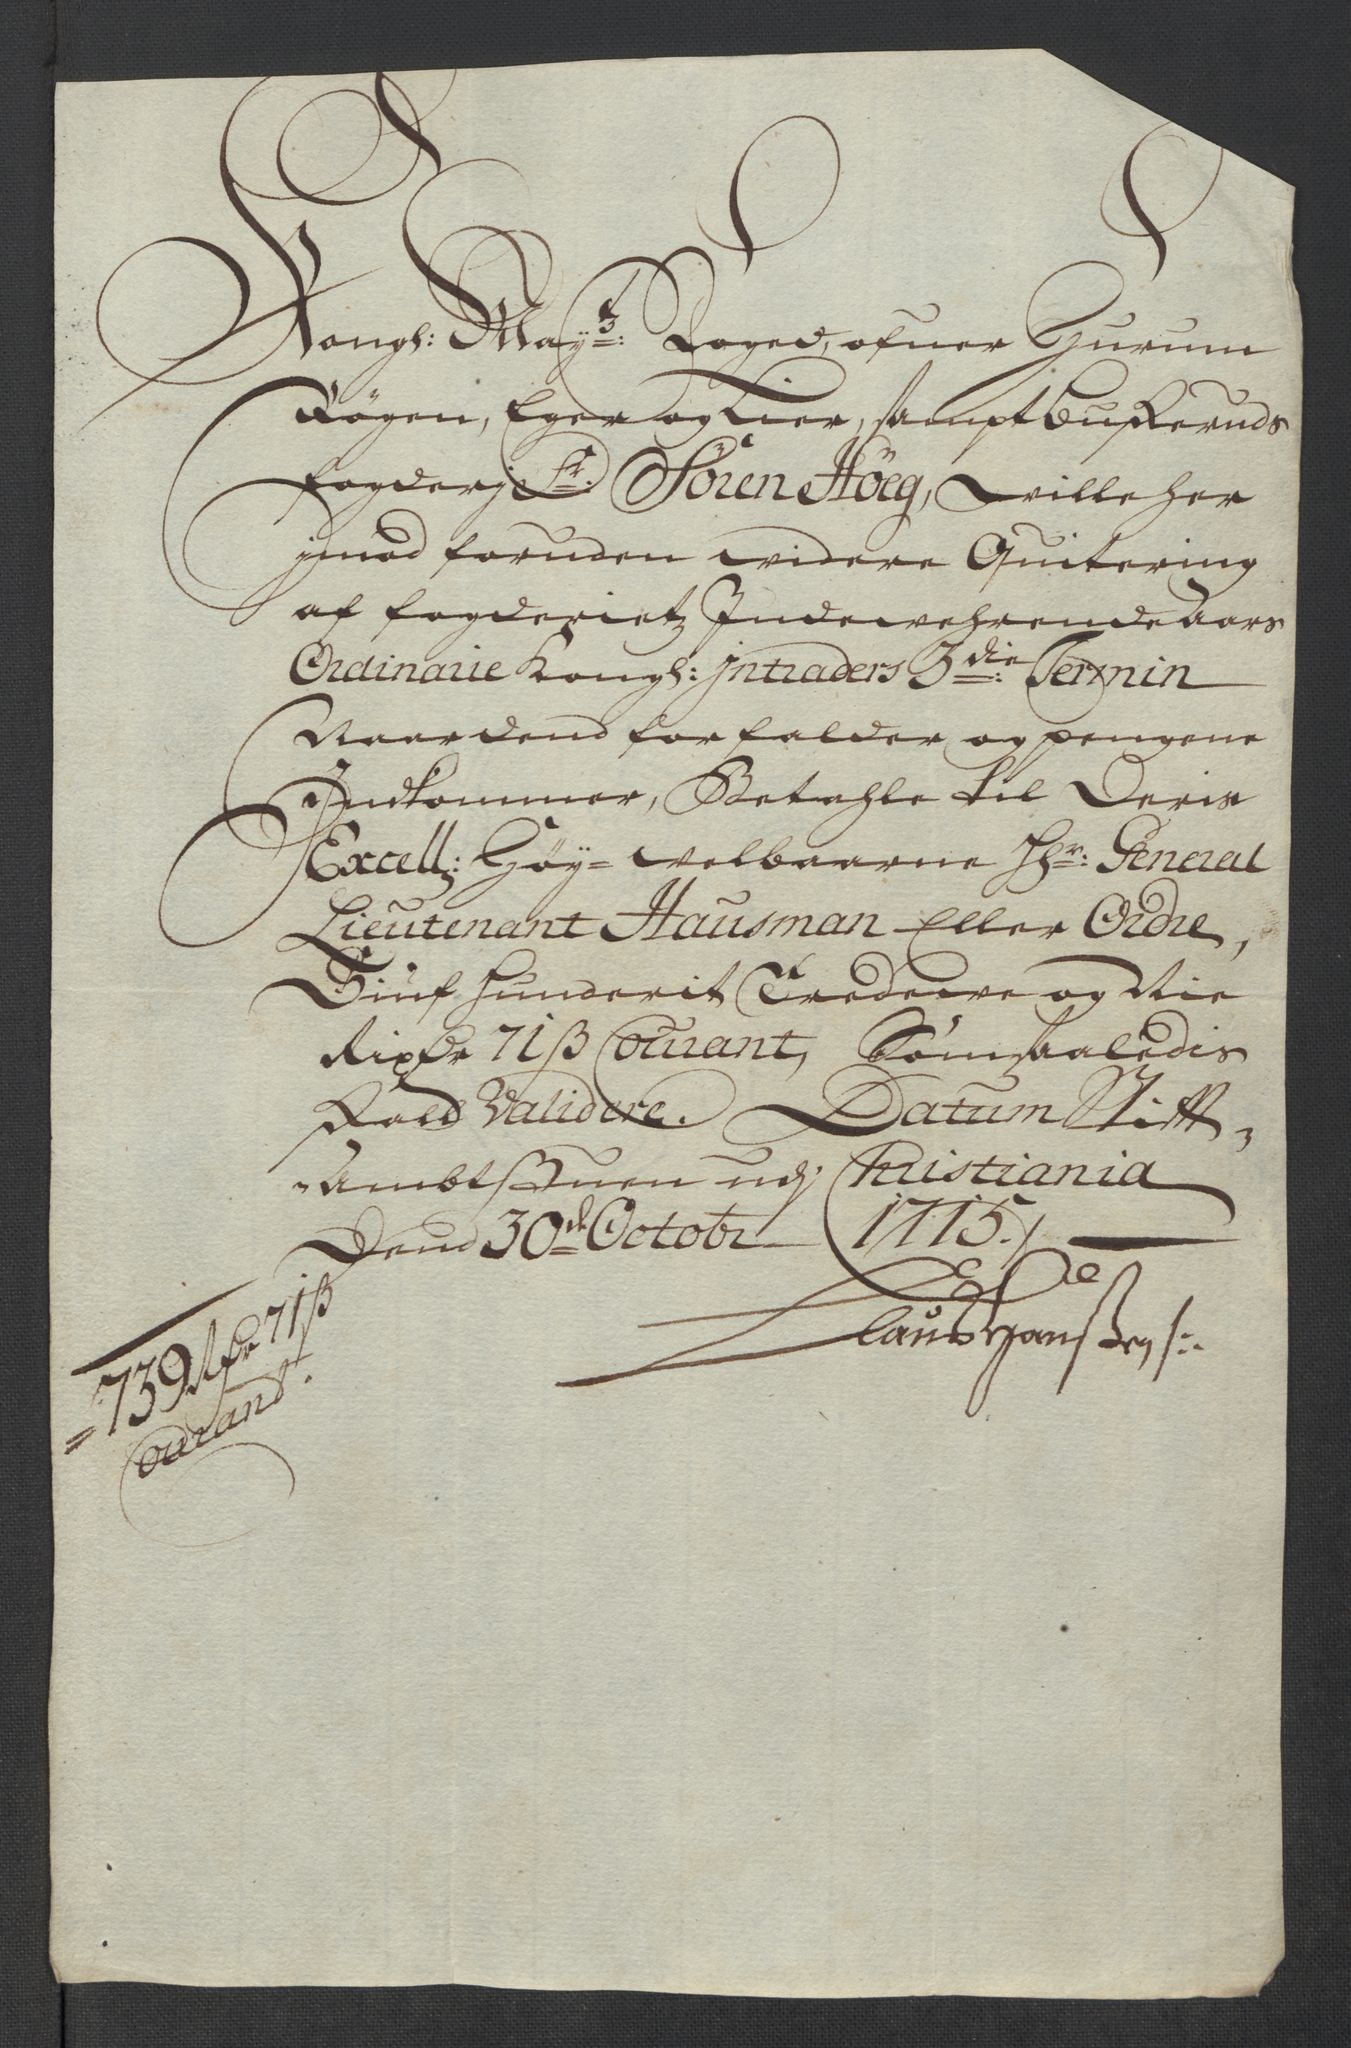 Kongl: May:tz Foged, ofuer Hurum
Røgen, Eger og Lier, sampt Buskeruds
fogderj Sr: Søren Höeg, wille her
imod foruden widere Quitering
af fogderietz Indewehrende Aars
Ordinarie Kongl: Intraders 3die: Termin
Naar dend forfalder og pengene
Indkommer, Betahle til Deris
Excell: Høy-welbaarne Hr: General
Lieutenant Hausman Eller Ordre,
Siuf hunderit Tredeive og Nie
Rixdr 71 ß Courant, Som saaledis
skall Validere. Datum Stift
Ambtstuen udj Christiania
Dend 30de Octobr 1715.
Claus Hanssen
=739 Rdr 71 ß
Courant.